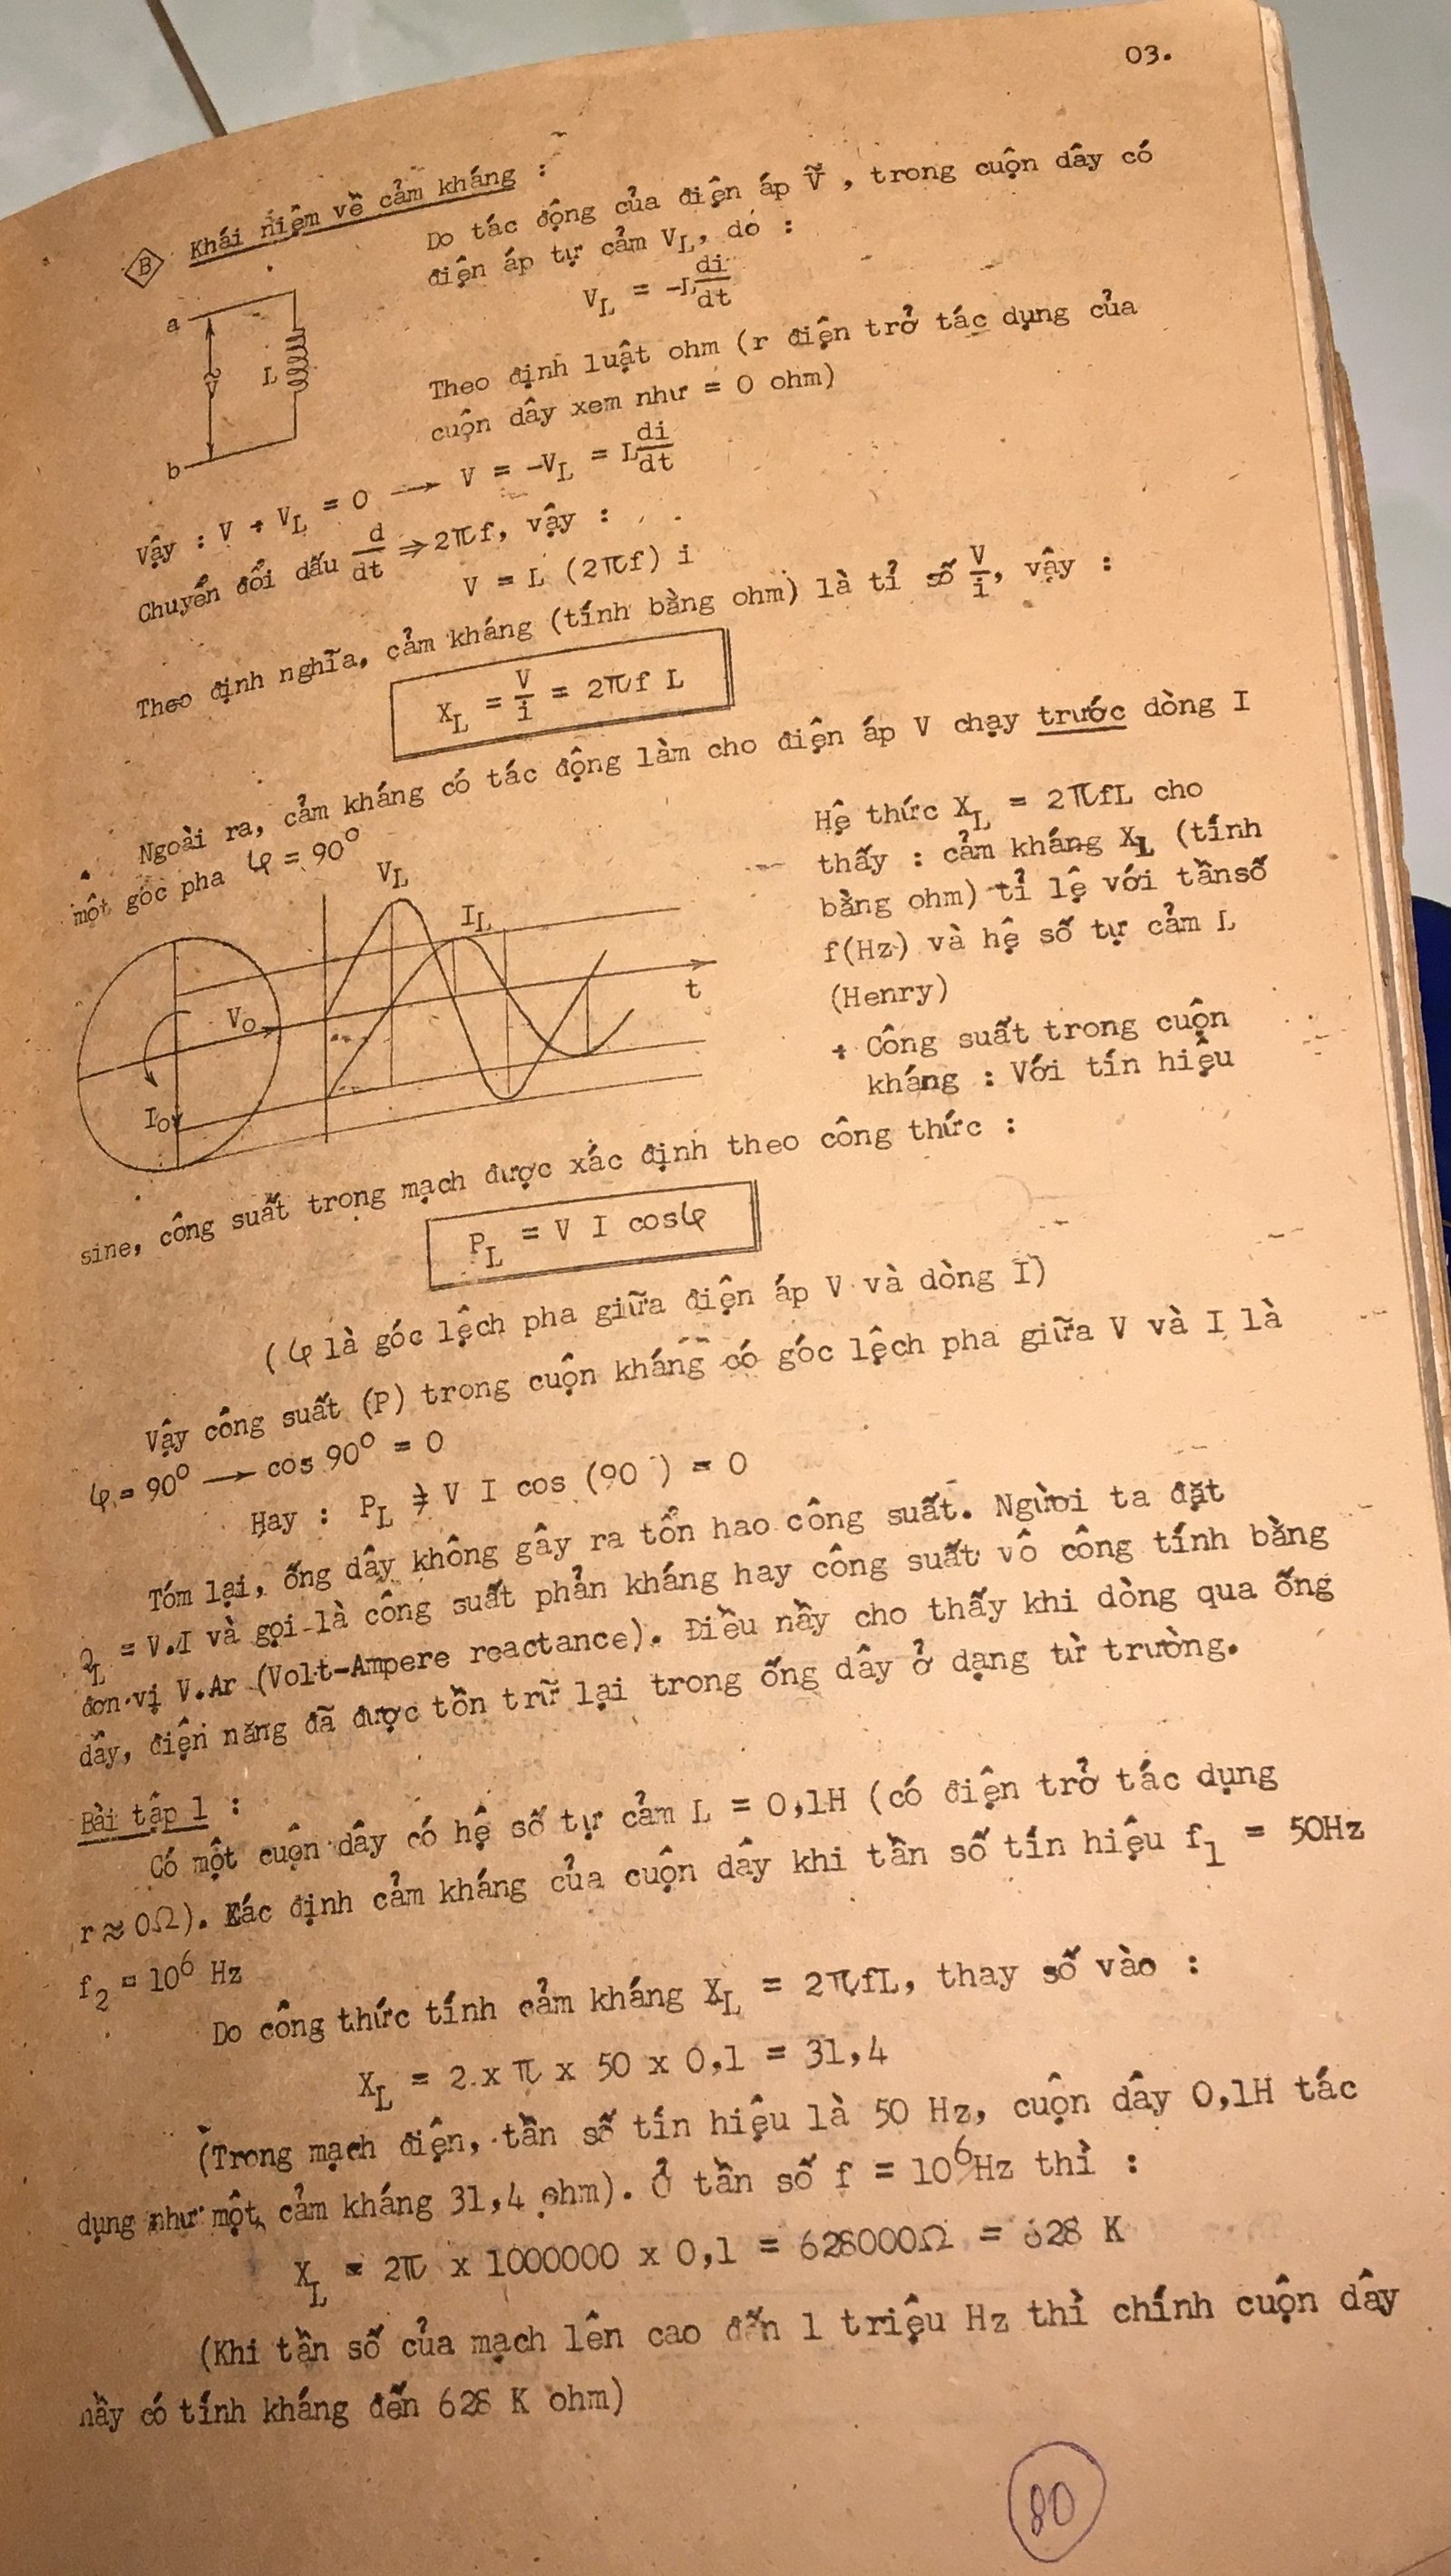 03.
B Khái niệm về cảm kháng :
Do tác động của điện áp Ṽ , trong cuộn dây có
điện áp tự cảm V_L, do :
V_L = -L di/dt
a
Ṽ
L
b
Theo định luật ohm (r điện trở tác dụng của
cuộn dây xem như = 0 ohm)
Vậy : V + V_L = 0 → V = -V_L = L di/dt
Chuyển đổi dấu d/dt ⇒ 2πf, vậy :
V = L (2πf) i
Theo định nghĩa, cảm kháng (tính bằng ohm) là tỉ số V/i, vậy :
X_L = V/i = 2πf L
Ngoài ra, cảm kháng có tác động làm cho điện áp V chạy trước dòng I
một góc pha φ = 90°
V_L
I_L
V_O
I_O
t
Hệ thức X_L = 2πfL cho
thấy : cảm kháng X_L (tính
bằng ohm) tỉ lệ với tầnsố
f(Hz) và hệ số tự cảm L
(Henry)
+ Công suất trong cuộn
kháng : Với tín hiệu
sine, công suất trong mạch được xác định theo công thức :
P_L = V I cosφ
(φ là góc lệch pha giữa điện áp V và dòng I)
Vậy công suất (P) trong cuộn kháng có góc lệch pha giữa V và I là
φ = 90° → cos 90° = 0
Hay : P_L = V I cos (90°) = 0
Tóm lại, ống dây không gây ra tổn hao công suất. Người ta đặt
Q_L = V.I và gọi là công suất phản kháng hay công suất vô công tính bằng
đơn vị V.Ar (Volt-Ampere reactance). Điều nầy cho thấy khi dòng qua ống
dây, điện năng đã được tồn trữ lại trong ống dây ở dạng từ trường.
Bài tập 1 :
Có một cuộn dây có hệ số tự cảm L = 0,1H (có điện trở tác dụng
r ≈ 0Ω). Xác định cảm kháng của cuộn dây khi tần số tín hiệu f₁ = 50Hz
f₂ = 10⁶ Hz
Do công thức tính cảm kháng X_L = 2πfL, thay số vào :
X_L = 2 x π x 50 x 0,1 = 31,4
(Trong mạch điện, tần số tín hiệu là 50 Hz, cuộn dây 0,1H tác
dụng như một cảm kháng 31,4 ohm). Ở tần số f = 10⁶Hz thì :
X_L = 2π x 1000000 x 0,1 = 628000Ω = 628 K
(Khi tần số của mạch lên cao đến 1 triệu Hz thì chính cuộn dây
nầy có tính kháng đến 628 K ohm)
80